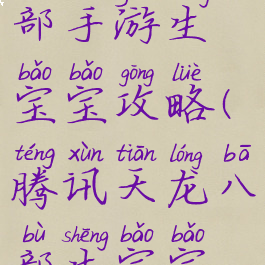 部手游生
bǎo bǎo gōng lüè
宝宝攻略(
téng xùn tiān lóng bā
腾讯天龙八
bù shēng bǎo bǎo
部生宝宝